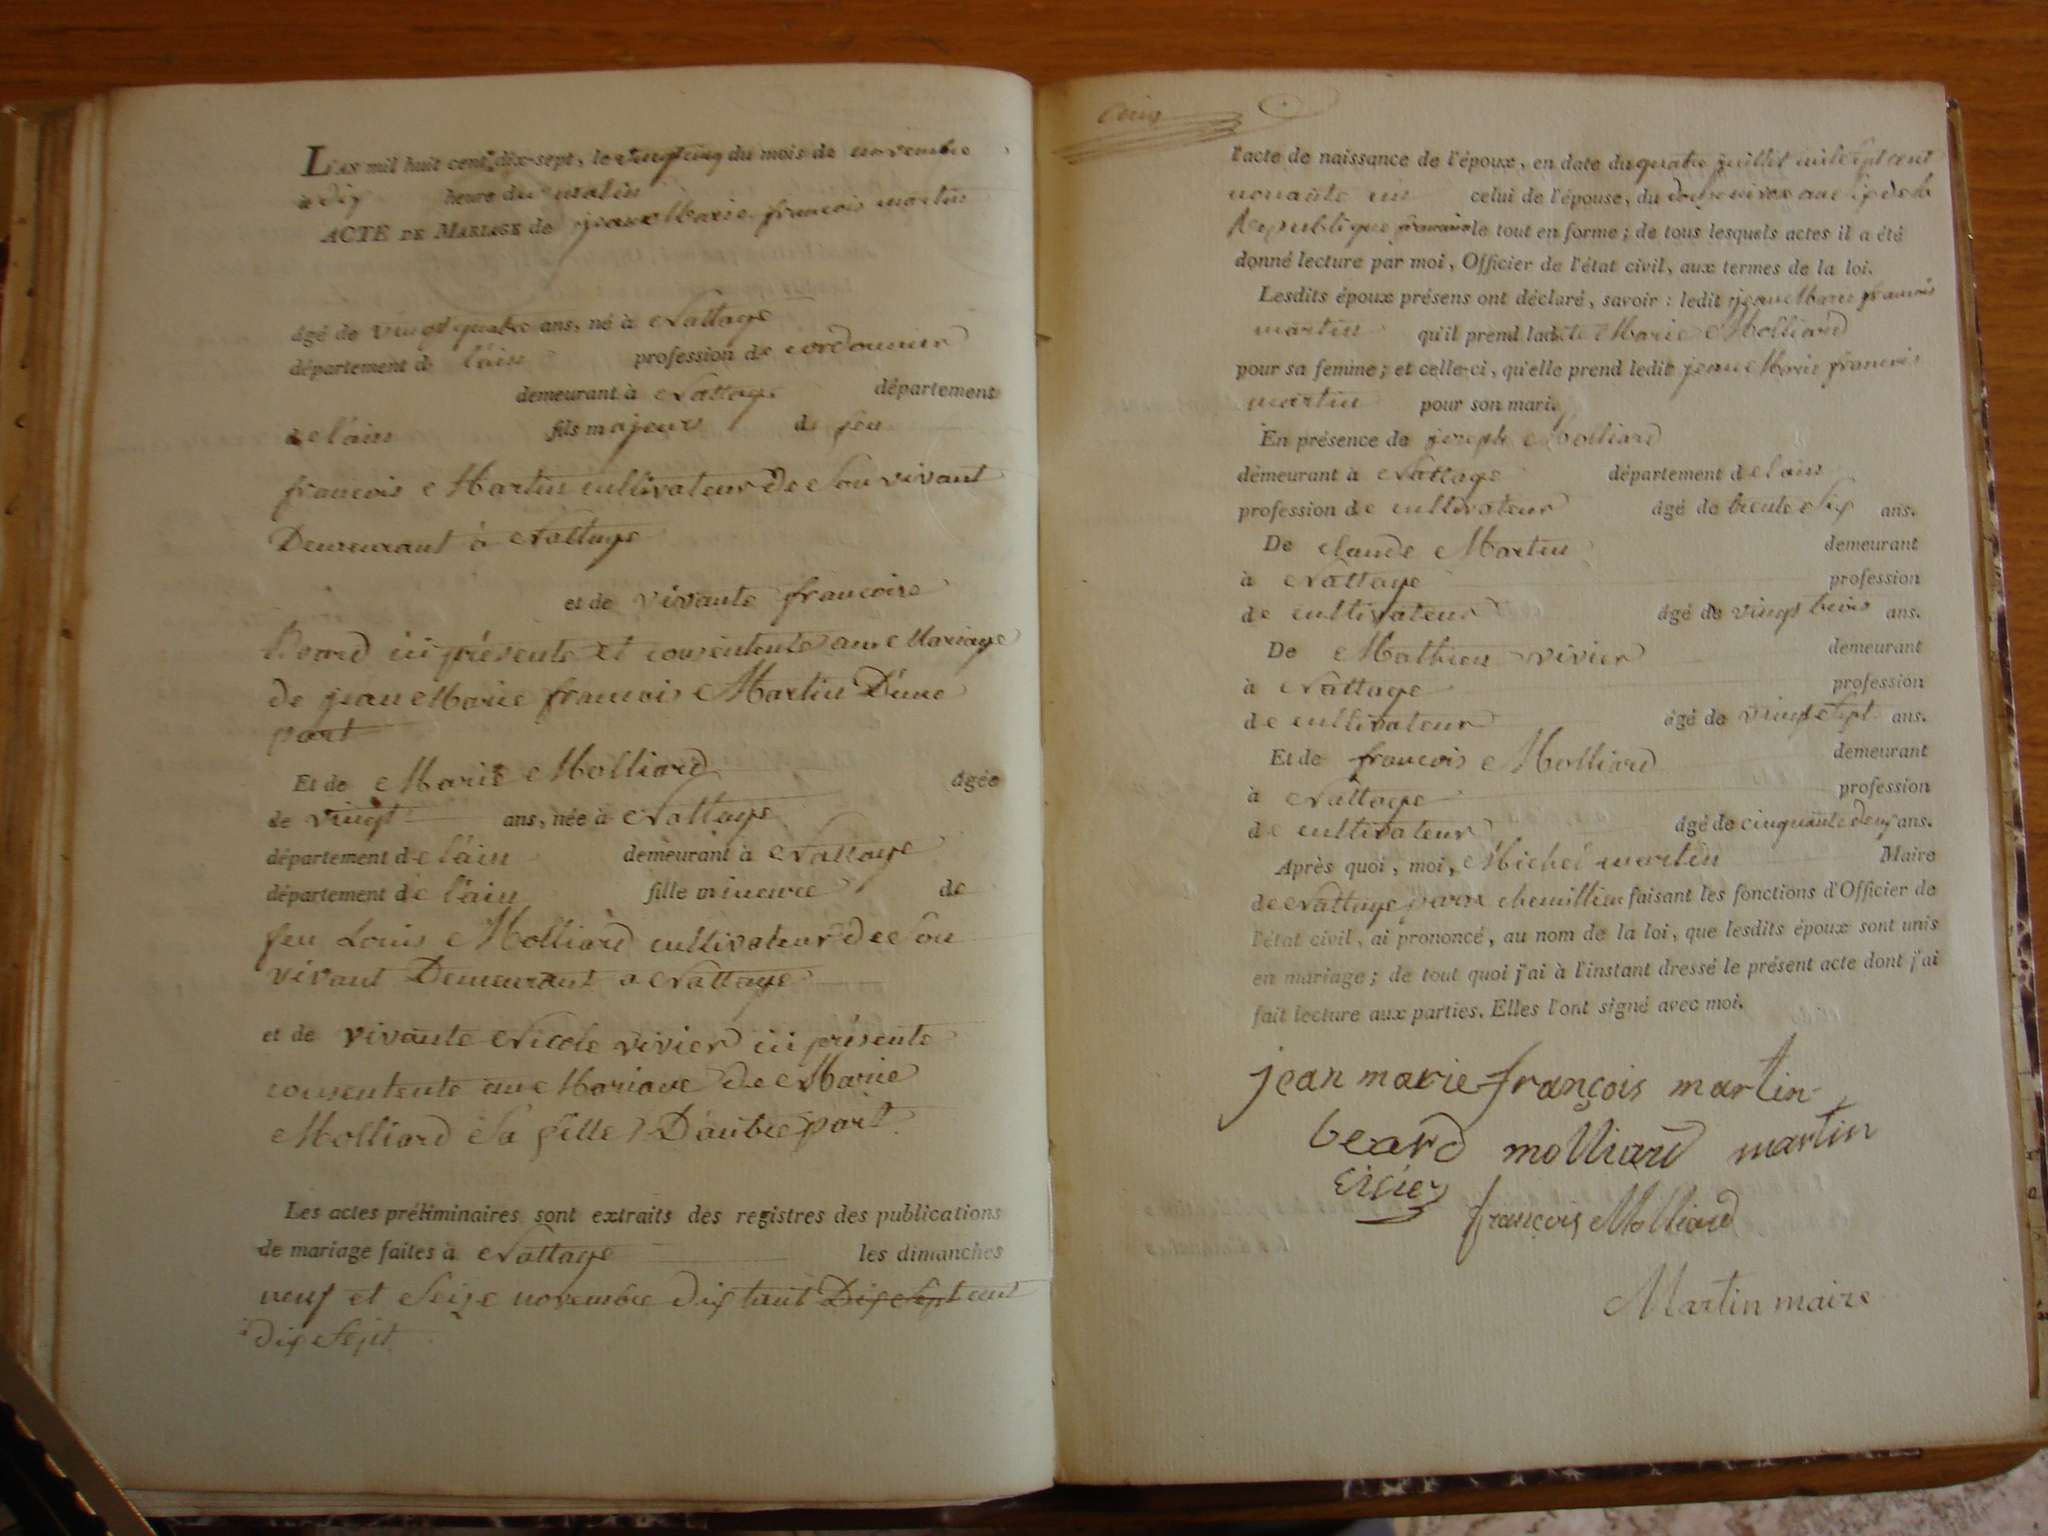 L'an mil huit cent dix-sept, le vingt cinq du mois de novembre
à dix heure du matin
ACTE DE MARIAGE de jean Marie françois martin
âgé de vingt quatre ans, né à Nattage
département de l'ain profession de cordonnier
demeurant à Nattage département
de l'ain fils majeur de feu
francois Martin cultivateur de Son vivant
Demeurant à Nattage
et de vivante francoise
Beard ici présente et consentente au Mariage
de jean Marie francois Martin D'une
part
Et de Marie Molliard âgée
de vingt ans, née à Nattage
département de l'ain demeurant à Nattage
département de l'ain fille mineure de
feu Louis Molliard cultivateur de Son
vivant Demeurant a Nattage
et de vivante Nicole vivier ici présente
consentente au Mariage de Marie
Molliard Sa fille D'autre part
Les actes préliminaires sont extraits des registres des publications
de mariage faites à Nattage les dimanches
neuf et Seize novembre dix huit Dix Sept cent
dix Sept
l'acte de naissance de l'époux, en date du quatre juillet mil sept cent
nonante un celui de l'épouse, du
Republique française le tout en forme; de tous lesquels actes il a été
donné lecture par moi, Officier de l'état civil, aux termes de la loi.
Lesdits époux présens ont déclaré, savoir : ledit jean Marie francois
martin qu'il prend ladite Marie Molliard
pour sa femme; et celle-ci, qu'elle prend ledit jean Marie francois
martin pour son mari.
En présence de joseph Molliard
demeurant à Nattage département de l'ain
profession de cultivateur âgé de trente Six ans.
De claude Martin demeurant
à Nattage profession
de cultivateur âgé de vingt trois ans.
De Mathieu vivier demeurant
à Nattage profession
de cultivateur âgé de vingt Sept ans.
Et de francois Molliard demeurant
à Nattage profession
de cultivateur âgé de cinquante deux ans.
Après quoi, moi, Michel martin Maire
de Nattage parve chemillieu faisant les fonctions d'Officier de
l'état civil, ai prononcé, au nom de la loi, que lesdits époux sont unis
en mariage; de tout quoi j'ai à l'instant dressé le présent acte dont j'ai
fait lecture aux parties. Elles l'ont signé avec moi.
jean marie françois martin
beard molliard martin
vivier
françois Molliard
Martin maire